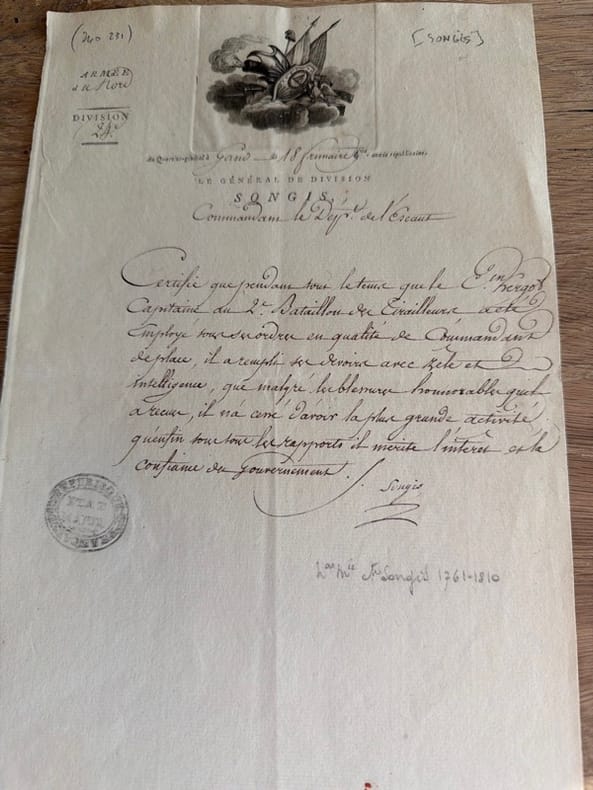 (No 231)
[SONGIS]
ARMÉE
du Nord
DIVISION
24e
Au Quartier-général à Gand le 18 frimaire année républicaine.
LE GÉNÉRAL DE DIVISION
SONGIS,
Commandant le Dépt. de l'Escaut
Certifie que pendant tout le tems que le Cen
Capitaine du 2e Bataillon des Tirailleurs a été
Employé sous ses ordres en qualité de Commandant
de place, il a rempli ses devoirs avec zèle et
intelligence, que malgré les blessures honnorables qu'il
a recues, il n'a cessé d'avoir la plus grande activité,
qu'enfin sous tous les rapports il mérite l'intérêt et la
confiance du Gouvernement.
Songis
REPUBLIQUE FRANÇAISE
ETAT
MAJOR
Songis 1761-1810